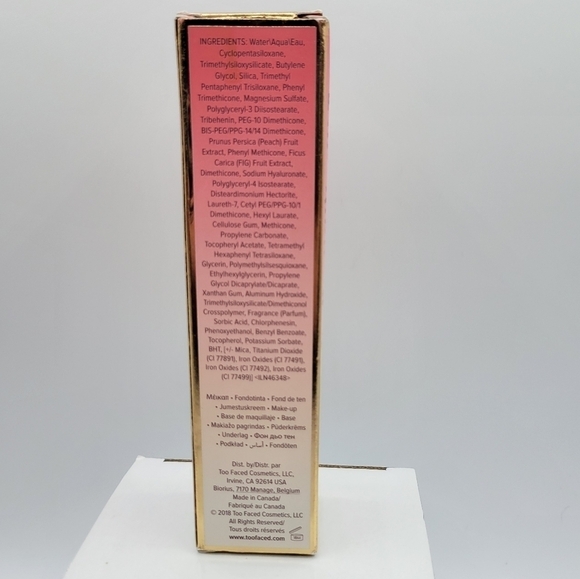 INGREDIENTS: Water\Aqua\Eau,
Cyclopentasiloxane,
Trimethylsiloxysilicate, Butylene
Glycol, Silica, Trimethyl
Pentaphenyl Trisiloxane, Phenyl
Trimethicone, Magnesium Sulfate,
Polyglyceryl-3 Diisostearate,
Tribehenin, PEG-10 Dimethicone,
BIS-PEG/PPG-14/14 Dimethicone,
Prunus Persica (Peach) Fruit
Extract, Phenyl Methicone, Ficus
Carica (FIG) Fruit Extract,
Dimethicone, Sodium Hyaluronate,
Polyglyceryl-4 Isostearate,
Disteardimonium Hectorite,
Laureth-7, Cetyl PEG/PPG-10/1
Dimethicone, Hexyl Laurate,
Cellulose Gum, Methicone,
Propylene Carbonate,
Tocopheryl Acetate, Tetramethyl
Hexaphenyl Tetrasiloxane,
Glycerin, Polymethylsilsesquioxane,
Ethylhexylglycerin, Propylene
Glycol Dicaprylate/Dicaprate,
Xanthan Gum, Aluminum Hydroxide,
Trimethylsiloxysilicate/Dimethiconol
Crosspolymer, Fragrance (Parfum),
Sorbic Acid, Chlorphenesin,
Phenoxyethanol, Benzyl Benzoate,
Tocopherol, Potassium Sorbate,
BHT, [+/- Mica, Titanium Dioxide
(CI 77891), Iron Oxides (CI 77491),
Iron Oxides (CI 77492), Iron Oxides
(CI 77499)] <ILN46348>
Μέικαπ • Fondotinta • Fond de ten
• Jumestuskreem • Make-up
• Base de maquillaje • Base
• Makiažo pagrindas • Püderkrēms
• Underlag • Фон дьо тен
• Podkład • أساس • Fondöten
Dist. by/Distr. par
Too Faced Cosmetics, LLC,
Irvine, CA 92614 USA
Biorius, 7170 Manage, Belgium
Made in Canada/
Fabriqué au Canada
© 2018 Too Faced Cosmetics, LLC
All Rights Reserved/
Tous droits réservés
www.toofaced.com